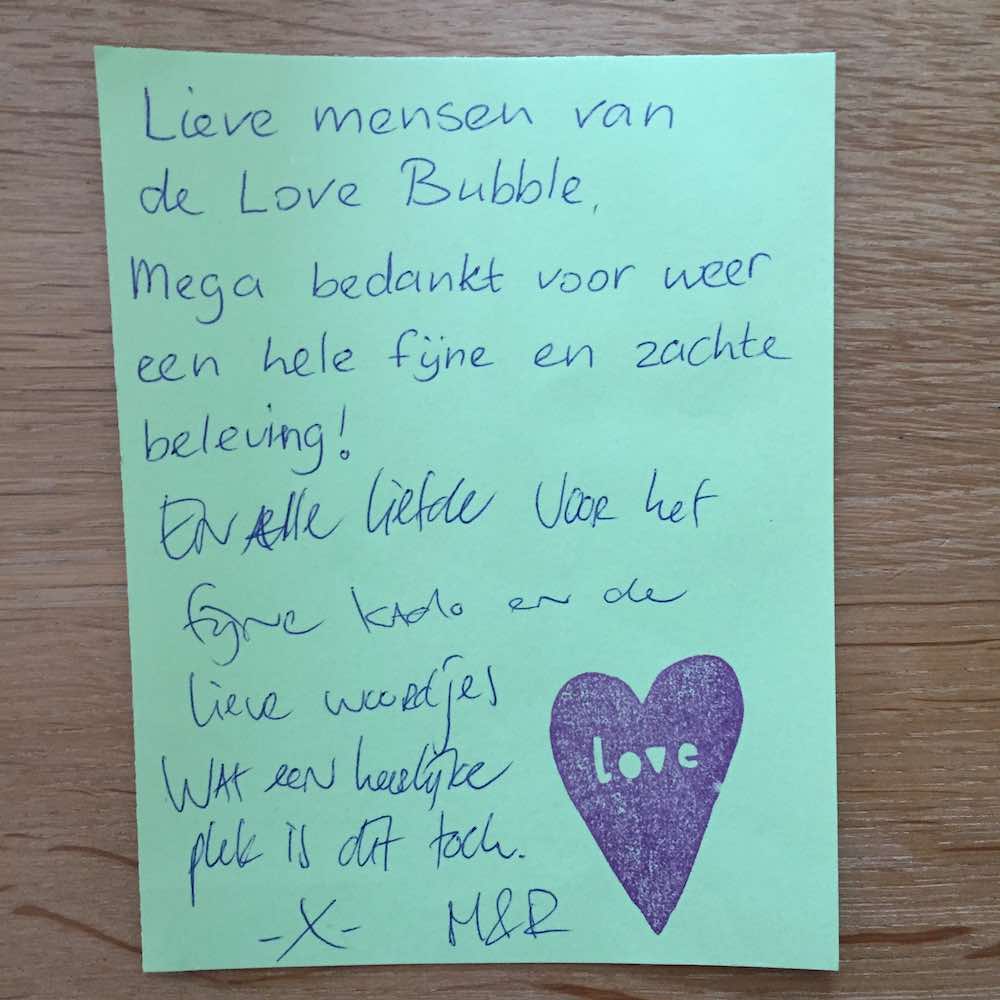 Lieve mensen van
de Love Bubble,
Mega bedankt voor weer
een hele fijne en zachte
beleving!
En Alle liefde voor het
fijne kado en de
lieve woordjes
Wat een heerlijke
plek is dit toch.
-X- M&R
love